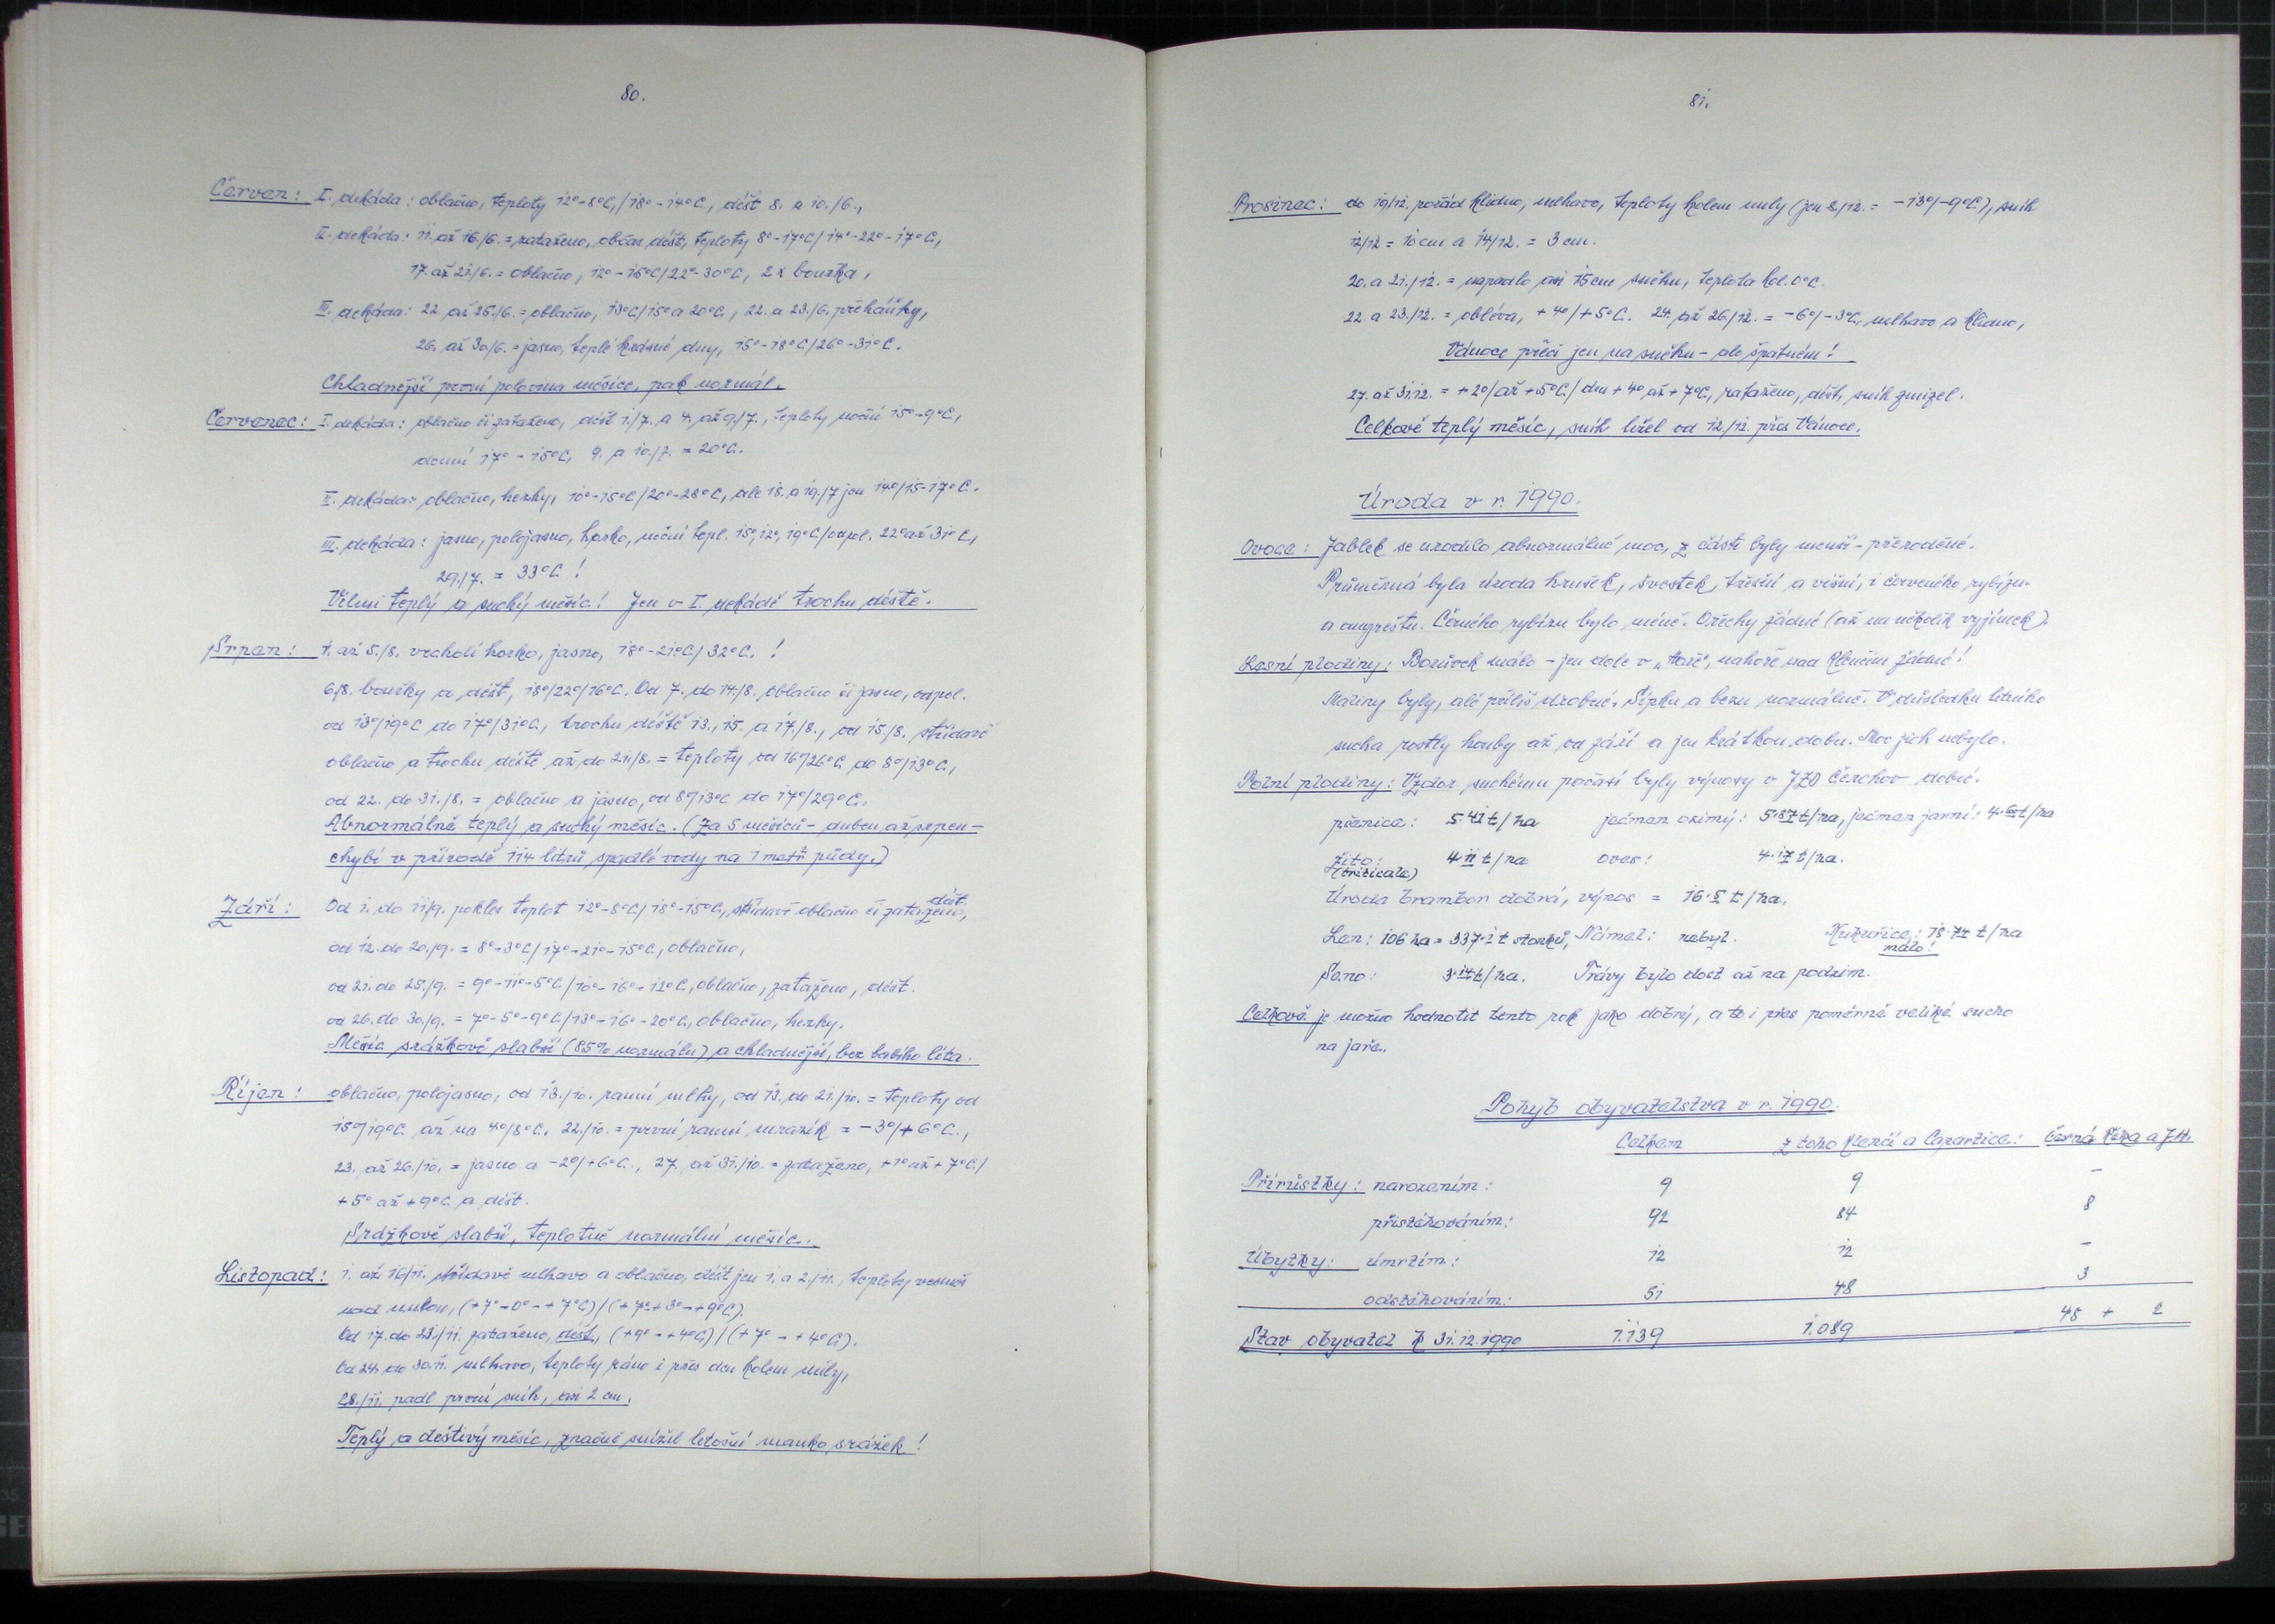 80.
Červen: I. dekáda: oblačno, teploty 12°-8°C/18°-14°C, déšť 8. a 10./6.,
II. dekáda: 11. až 16./6. = zataženo, občas déšť, teploty 8°-17°C/14°-22°-17°C,
17. až 21./6. = oblačno, 12°-15°C/22°-30°C, 2x bouřka,
III. dekáda: 22. až 25./6. = oblačno, 13°C/15° a 20°C, 22. a 23./6. přeháňky,
26. až 30/6. = jasno, teplé krásné dny, 15°-18°C/26°-31°C.
Chladnější první polovina měsíce, pak normál.
Červenec: I. dekáda: oblačno či zataženo, déšť 1./7. a 4. až 9./7., teploty noční 15°-9°C,
denní 17°-15°C, 9. a 10./7. = 20°C.
II. dekáda: oblačno, hezky, 10°-15°C/20°-28°C, ale 18. a 19./7 jen 14°/15-17°C.
III. dekáda: jasno, polojasno, horko, noční tepl. 15°, 12°, 19°C/odpol. 22° až 31°C,
29./7. = 33°C!
Velmi teplý a suchý měsíc! Jen v I. dekádě trochu deště.
Srpen: 1. až 5./8. vrcholí horko, jasno, 18°-21°C/32°C.!
6./8. bouřky a déšť, 18°/22°/16°C. Od 7. do 14./8. oblačno či jasno, odpol.
od 13°/19°C do 17°/31°C, trochu deště 13., 15. a 17./8., od 15./8. střídavě
oblačno a trochu deště až do 21/8. = teploty od 16°/26°C do 8°/13°C,
od 22. do 31./8. = oblačno a jasno, od 8°/13°C do 17°/29°C.
Abnormálně teplý a suchý měsíc. (Za 5 měsíců - duben až srpen -
chybí v přírodě 114 litrů spadlé vody na 1 metr² půdy.)
Září: Od 1. do 11/9. pokles teplot 12°-8°C/18°-15°C, střídavě oblačno či zataženo, déšť.
od 12. do 20./9. = 8°-3°C/17°-21°-15°C, oblačno,
od 21. do 25./9. = 9°-11°-5°C/10°-16°-12°C, oblačno, zataženo, déšť.
od 26. do 30./9. = 7°-5°-9°C/13°-16°-20°C, oblačno, hezky.
Měsíc srážkově slabší (85% normálu) a chladnější, bez babího léta.
Říjen: oblačno, polojasno, od 13./10. ranní mlhy, od 13. do 21./10. = teploty od
15°/19°C až na 4°/8°C. 22./10. = první ranní mrazík = -3°/+6°C,
23. až 26./10. = jasno a -2°/+6°C, 27. až 31./10. = zataženo, +1° až +7°C/
+5° až +9°C a déšť.
Srážkově slabší, teplotně normální měsíc.
Listopad: 1. až 16/11. střídavě mlhavo a oblačno, déšť jen 1. a 2./11., teploty vesměs
nad nulou, (+7°-0°-+7°C)/(+7°-+3°-+9°C).
Od 17. do 23./11. zataženo, déšť, (+9°-+4°C)/(+7°-+4°C).
Od 24. do 30.11. mlhavo, teploty ráno i přes den kolem nuly,
28./11. padl první sníh, asi 2 cm.
Teplý a deštivý měsíc, značně snížil letošní manko srážek!
81.
Prosinec: do 19/12. pořád klidno, mlhavo, teploty kolem nuly (jen 8./12. = -13°/-9°C), sníh
12/12 = 10 cm a 14/12. = 3 cm.
20. a 21./12. = napadlo asi 15 cm sněhu, teplota kol. 0°C.
22. a 23./12. = obleva, +4°/+5°C. 24. až 26/12. = -6°/-3°C, mlhavo a klidno,
Vánoce přeci jen na sněhu - ale špatném!
27. až 31.12. = +2°/až +5°C/ den +4° až +7°C, zataženo, déšť, sníh zmizel.
Celkově teplý měsíc, sníh ležel od 12./12. přes Vánoce.
Úroda v r. 1990.
Ovoce: Jablek se urodilo abnormálně moc, z části byly menší - přerozené.
Průměrná byla úroda hrušek, švestek, třešní a višní, i červeného rybízu
a angreštu. Černého rybízu bylo méně. Ořechy žádné (až na několik vyjímek).
Lesní plodiny: Borůvek málo - jen dole v nahoře nad Klenčím žádné!
Maliny byly, ale příliš drobné. Šípku a bezu normálně. V důsledku letního
sucha rostly houby až od září a jen krátkou dobu. Moc jich nebylo.
Polní plodiny: Vzdor suchému počasí byly výnosy v JZD Čerchov dobré.
pšenice: 5.41 t/ha ječmen ozimý: 5.87 t/ha, ječmen jarní: t/ha
žito: 4.11 t/ha oves: 4.17 t/ha.
(triticale)
Úroda brambor dobrá, výnos = 16.5 t/ha.
Len: 106 ha = 337.1 t stonků, Námel: nebyl. Kukuřice: 18.74 t/ha
málo!
Seno: 3.14 t/ha. Trávy bylo dost až na podzim.
Celkově je možno hodnotit tento rok jako dobrý, a to i přes poměrně veliké sucho
na jaře.
Pohyb obyvatelstva v r. 1990.
Celkem z toho Klenčí a Capartice: Černá Řeka a J.H.
Přírůstky: narozením: 9 9 -
přistěhováním: 92 84 8
Úbytky: úmrtím: 12 12 -
odstěhováním: 51 48 3
Stav obyvatel k 31.12.1990 1.139 1.089 48 + 2